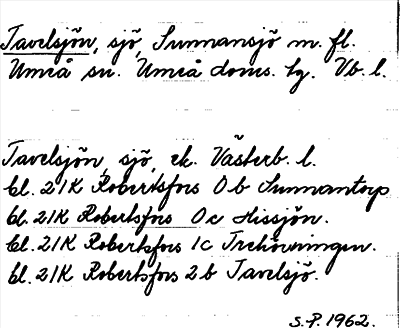 Tavelsjön, sjö, Sunnansjö m. fl.
Umeå sn. Umeå doms. tg. Vb. l.
Tavelsjön, sjö, ek. Västerb. l.
bl. 21K Robertsfors 0b Sunnantorp
bl. 21K Robertsfors 0c Hissjön.
bl. 21K Robertsfors 1c Trehörningen.
bl. 21K Robertsfors 2b Tavelsjö.
S.P. 1962.